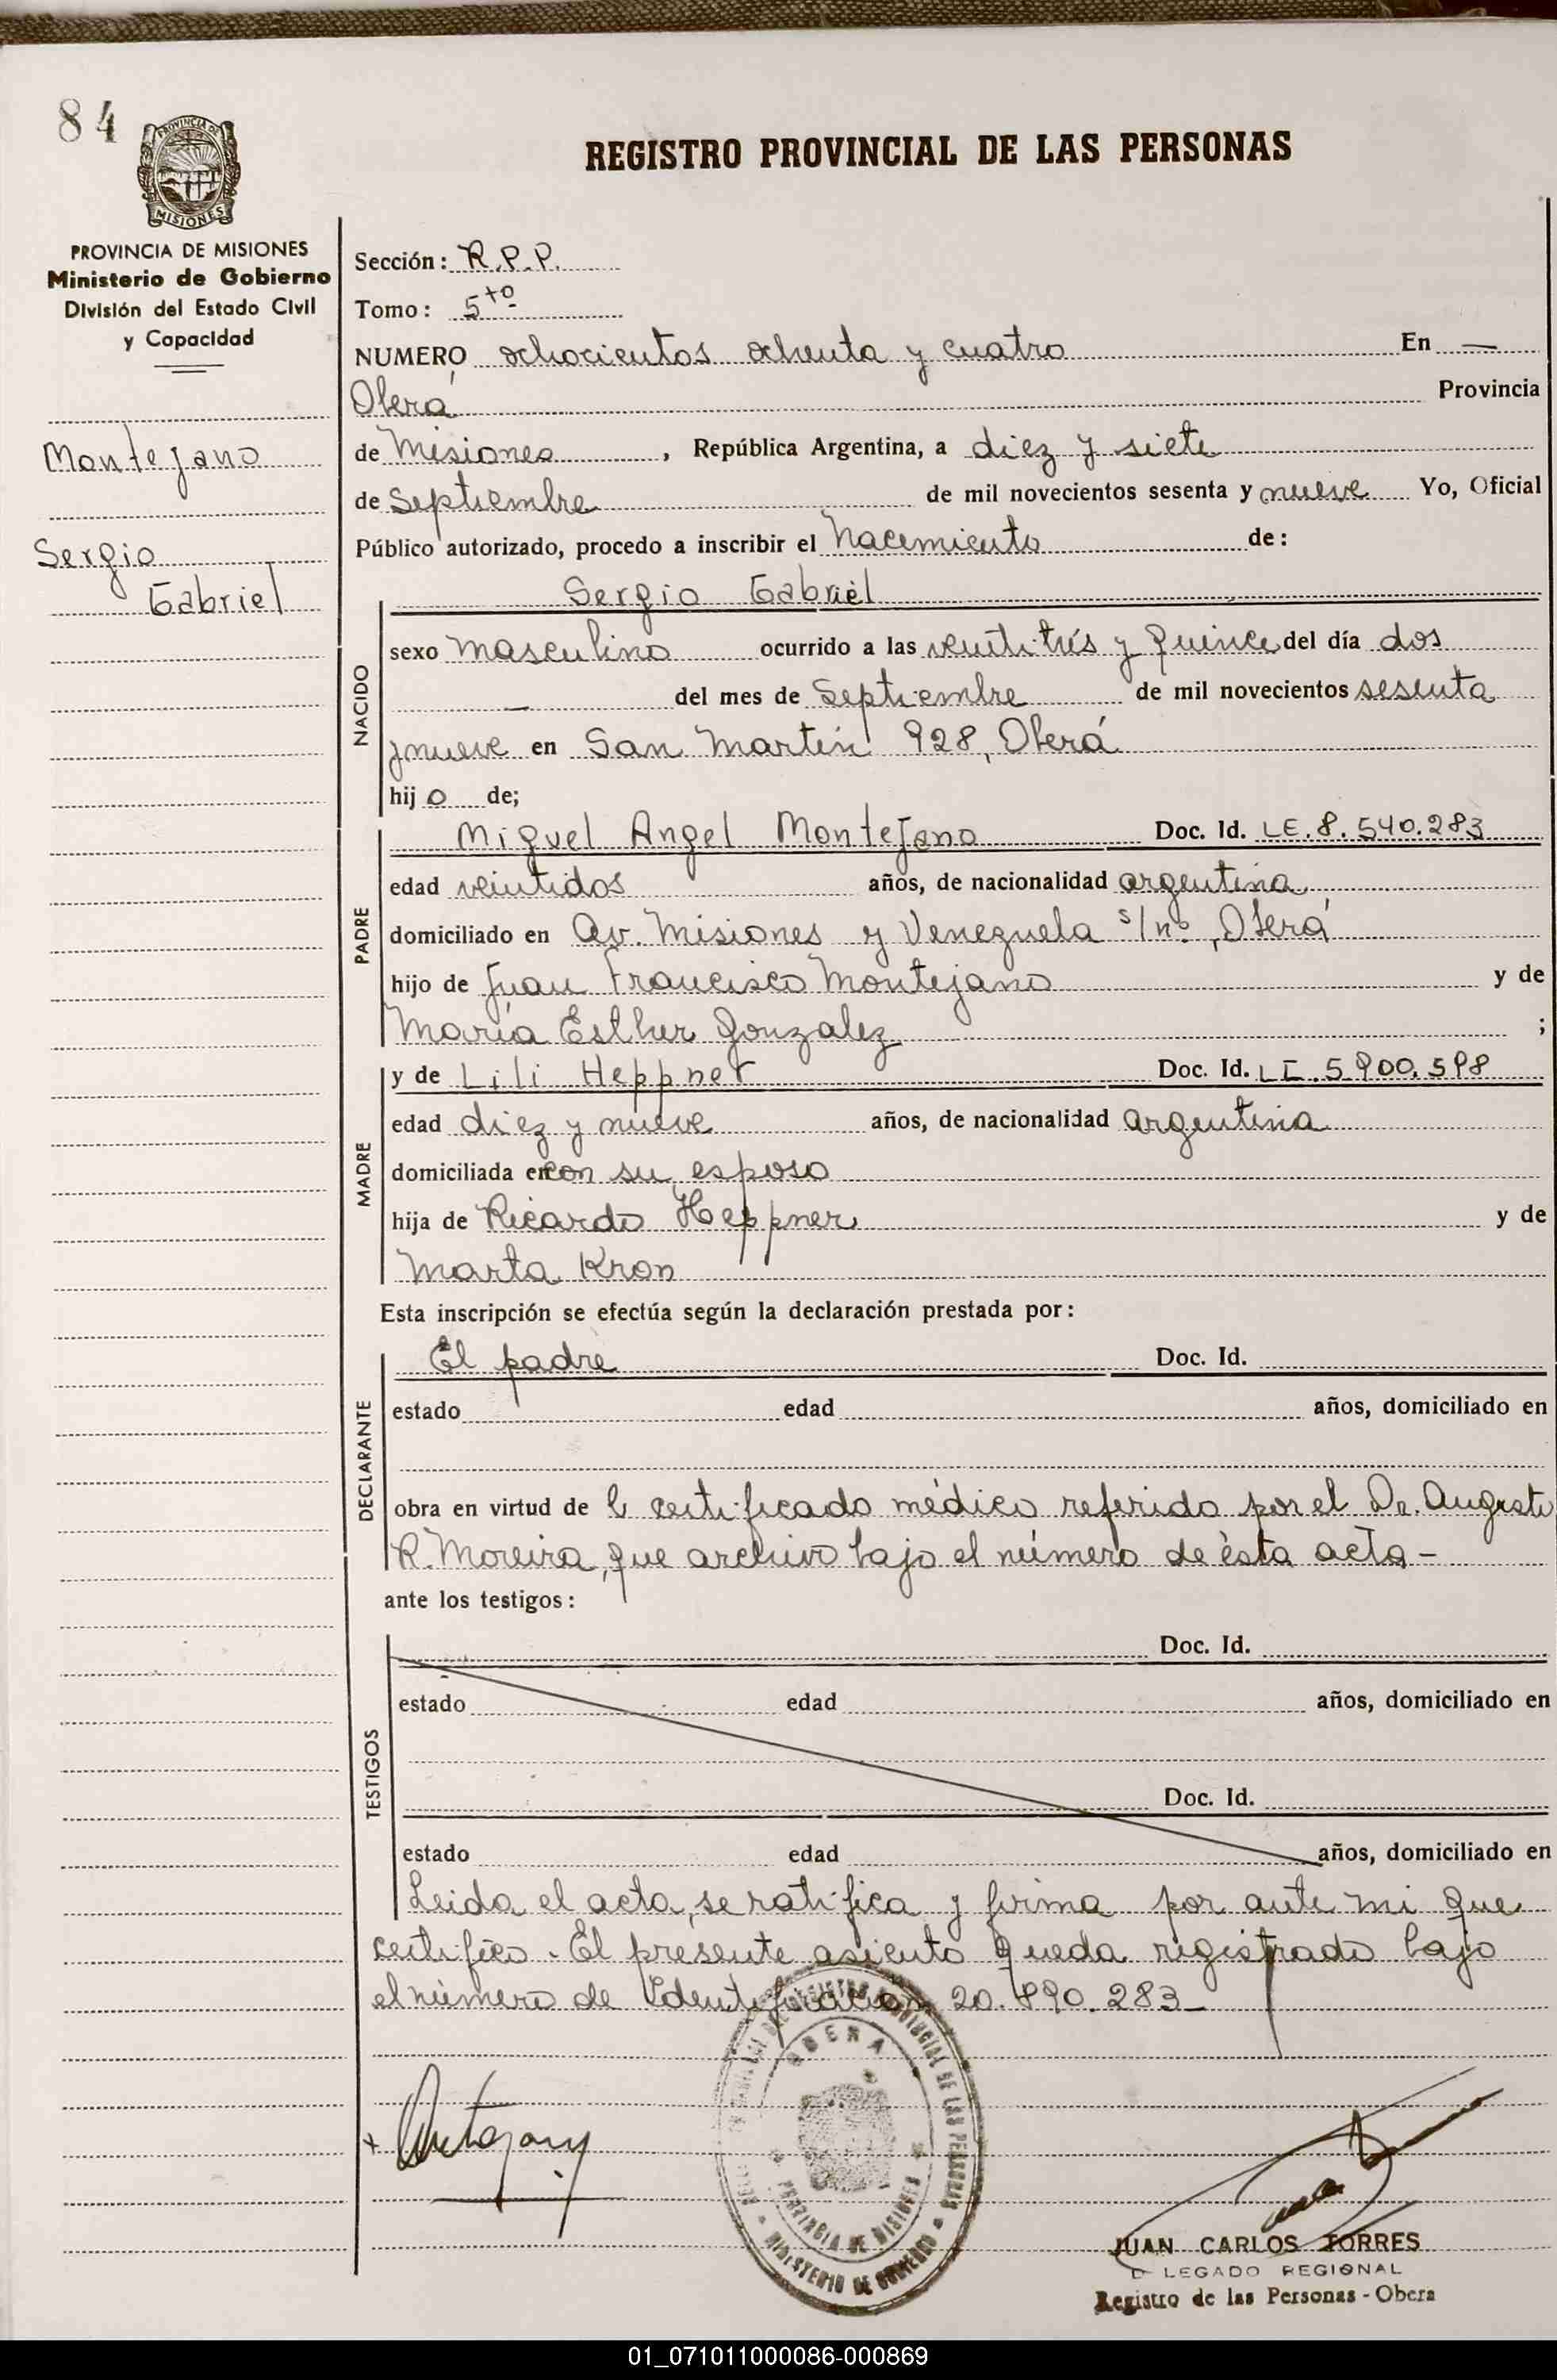 84
PROVINCIA DE
MISIONES
REGISTRO PROVINCIAL DE LAS PERSONAS
PROVINCIA DE MISIONES
Ministerio de Gobierno
División del Estado Civil
y Capacidad
Montejano
Sergio
Gabriel
Sección: R.P.P.
Tomo: 5to
NUMERO ochocientos ochenta y cuatro En —
Oberá Provincia
de Misiones, República Argentina, a diez y siete
de Septiembre de mil novecientos sesenta y nueve Yo, Oficial
Público autorizado, procedo a inscribir el Nacimiento de:
Sergio Gabriel
NACIDO
sexo Masculino ocurrido a las veintitrés y quince del día dos
— del mes de Septiembre de mil novecientos sesenta
y nueve en San Martín 928, Oberá
hijo de;
PADRE
Miguel Angel Montejano Doc. Id. LE. 8.540.283
edad veintidos años, de nacionalidad argentina
domiciliado en Av. Misiones y Venezuela s/nº, Oberá
hijo de Juan Francisco Montejano y de
María Esther Gonzalez ;
MADRE
y de Lili Heppner Doc. Id. 5.900.598
edad diez y nueve años, de nacionalidad argentina
domiciliada en con su esposo
hija de Ricardo Heppner y de
Marta Kron
Esta inscripción se efectúa según la declaración prestada por:
DECLARANTE
El padre Doc. Id.
estado edad años, domiciliado en
obra en virtud de certificado médico referido por el Dr. Augusto
R. Moreira, que archivo bajo el número de ésta acta-
ante los testigos:
TESTIGOS
Doc. Id.
estado edad años, domiciliado en
Doc. Id.
estado edad años, domiciliado en
Leida el acta, se ratifica y firma por ante mi que
certifico. El presente asiento queda registrado bajo
el número de Identificación 20.890.283-
OBERA
PROVINCIA DE MISIONES
MINISTERIO DE GOBIERNO
JUAN CARLOS TORRES
DELEGADO REGIONAL
Registro de las Personas - Obera
01_071011000086-000869